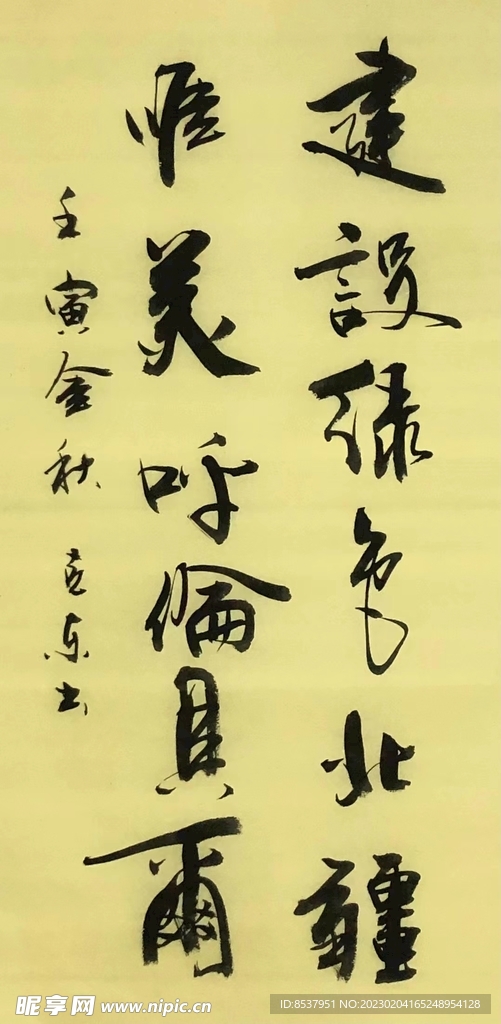 建設緑色北疆
唯美呼倫貝爾
壬寅金秋 克东书
昵享网 www.nipic.cn
ID:8537951 NO:20230204165248954128